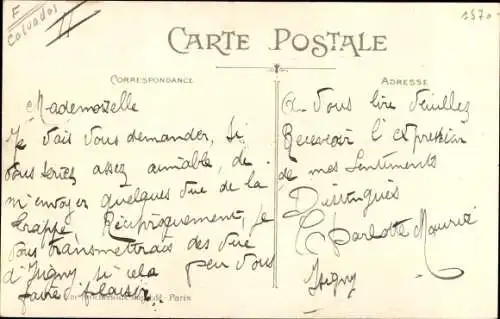 F
Calvados
1570
CARTE POSTALE
CORRESPONDANCE
ADRESSE
Mademoiselle
Je vais vous demander, si
vous seriez assez aimable, de
m'envoyer quelques vue de la
Trappe. Réciproquement, je
vous transmettrais des vue
d'Isigny si cela peu vous
faire plaisir.
Paris
A vous lire veuillez
Recevoir l'expression
de mes Sentiments
Distingués
Charlotte Maurice
Isigny